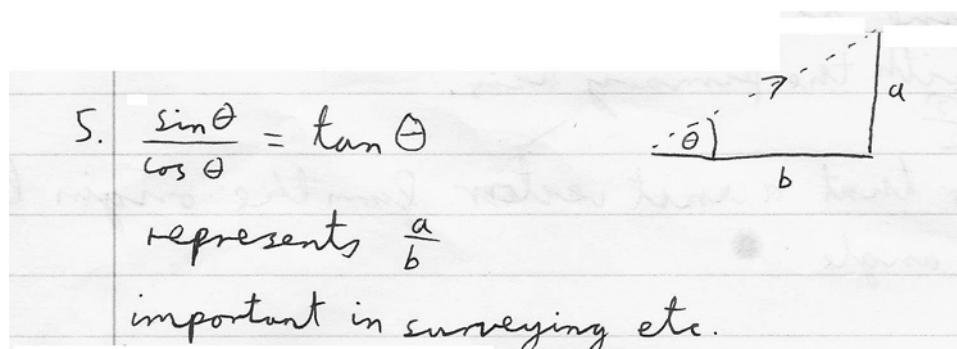 5. sin θ / cos θ = tan θ
θ
a
b
represents a/b
important in surveying etc.